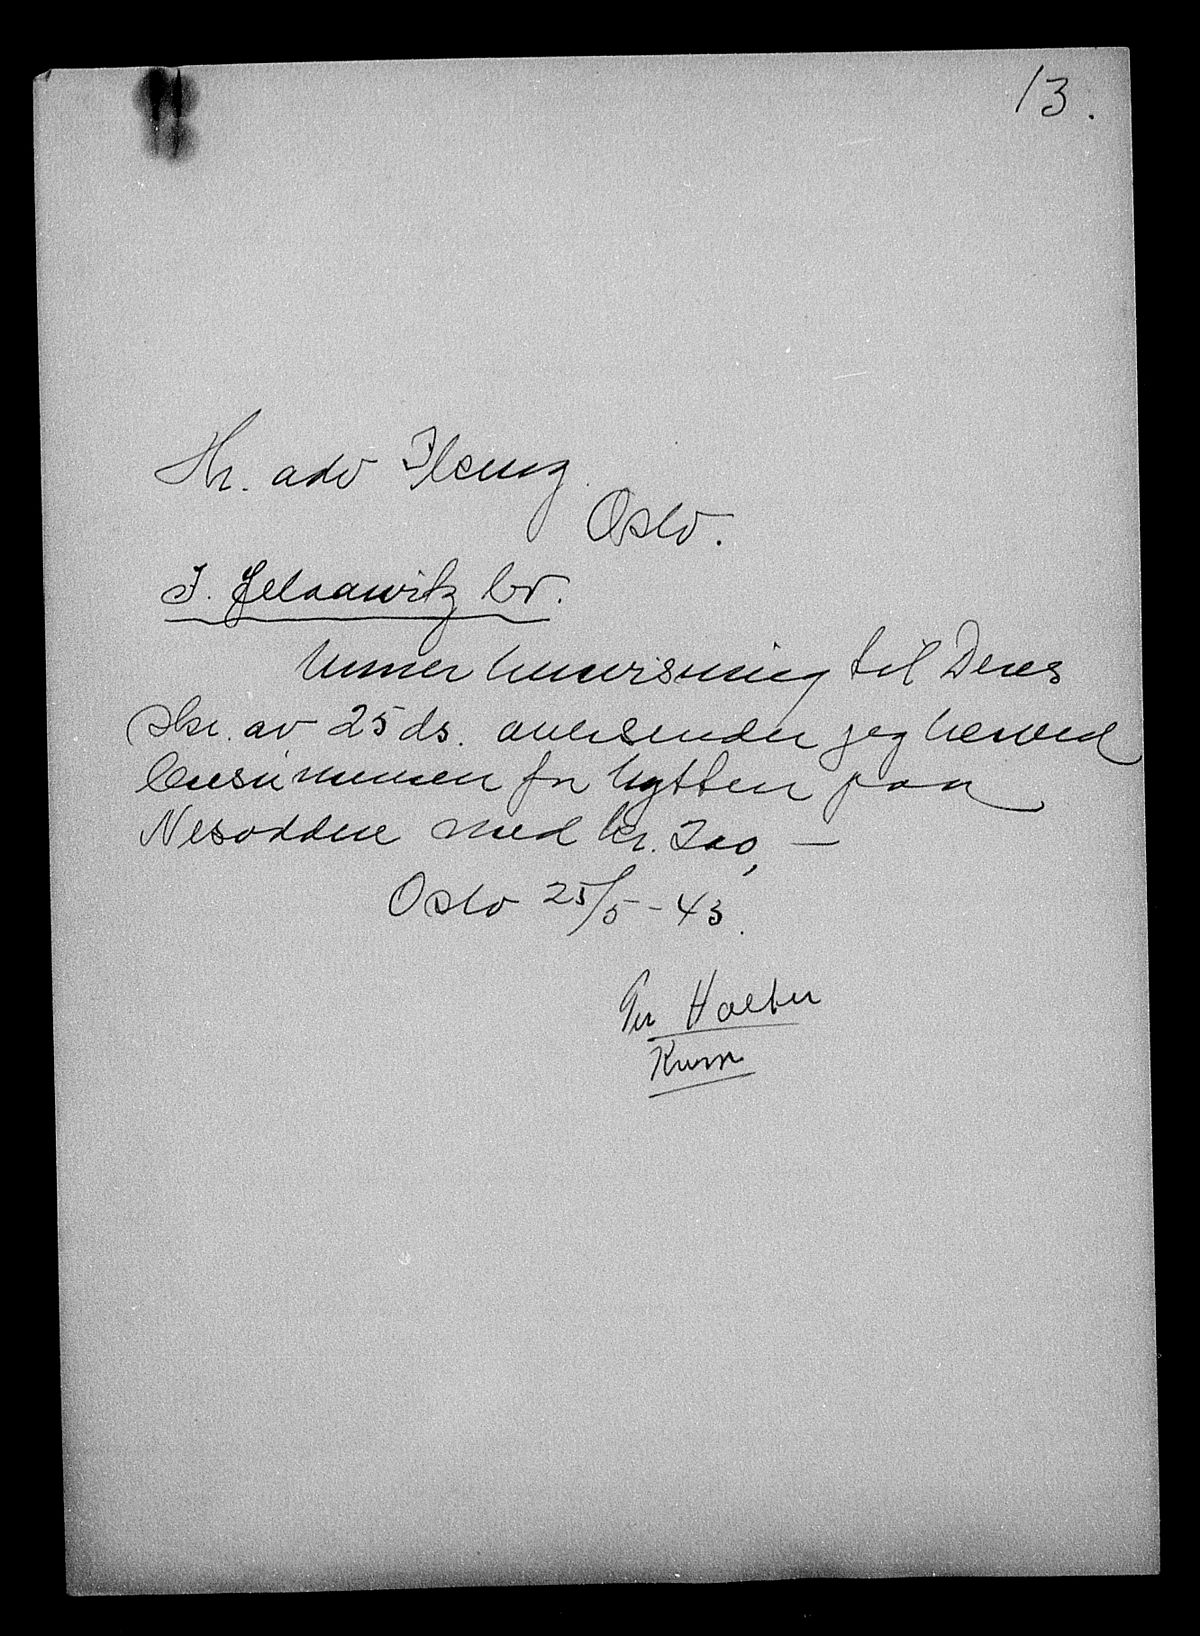 13.
Hr. adv Ilseng.
Oslo.
J. Jelaawitz bo.
Under henvisning til Deres
skr. av 25 ds. oversender jeg herved
leiesummen for hytten paa
Nesodden med kr. 200, —
Oslo 25/5 - 43.
Per Halter